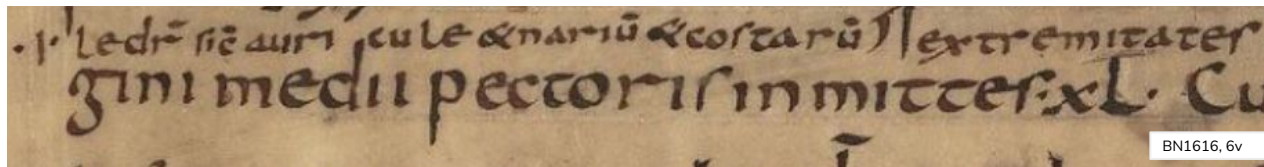 .i. ledr̄ sic̄ auri cule &nariū &costarū extremitates
gini medii pectoris inmittes: xL. Cu
BN1616, 6v